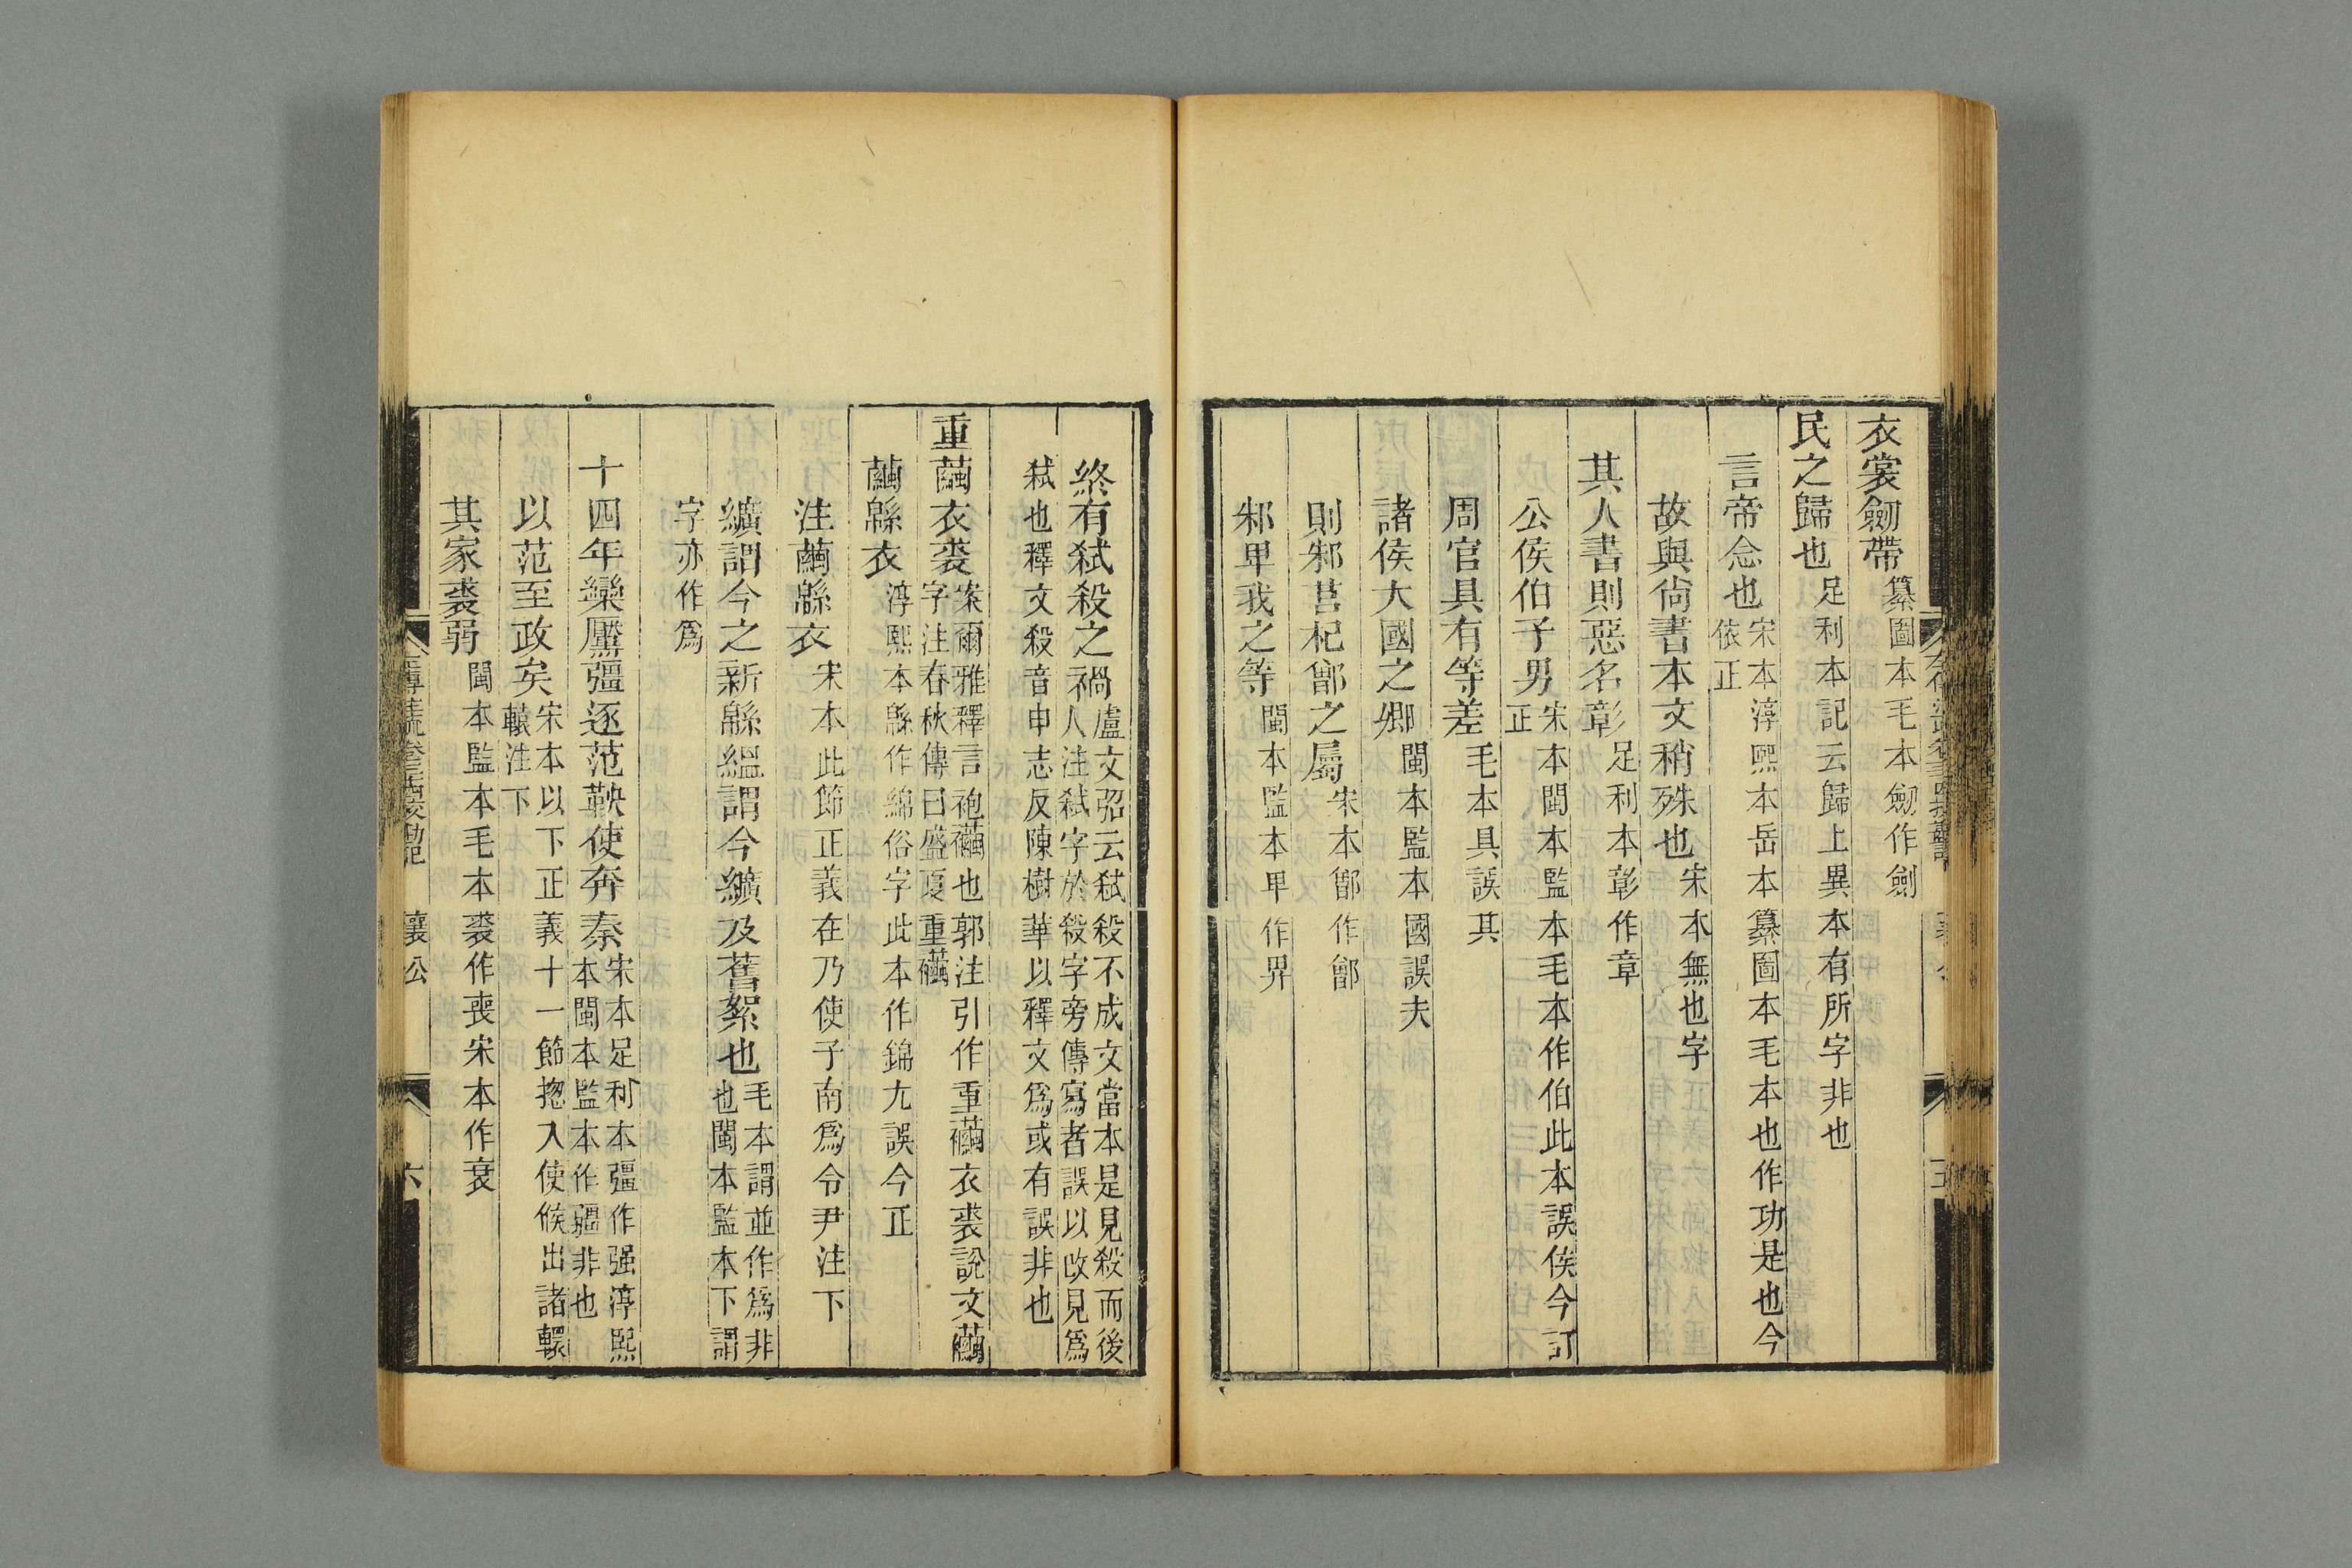 衣裳劒帶纂圖本毛本劒作劍
民之歸也足利本記云歸上異本有所字非也
言帝念也宋本淳熙本岳本纂圖本毛本也作功是也今
依正
故與尙書本文稍殊也宋本無也字
其人書則惡名彰足利本彰作章
公侯伯子男宋本閩本監本毛本作伯此本誤侯今訂
正
周官具有等差毛本具誤其
諸侯大國之卿閩本監本國誤夫
則邾莒杞鄫之屬宋本鄫作鄶
邾甲我之等閩本監本甲作畀
終有弑殺之禍盧文弨云弑殺不成文當本是見殺而後
人注弑字於殺字旁傳寫者誤以改見爲
弑也釋文殺音申志反陳樹華以釋文爲或有誤非也
重繭衣裘案爾雅釋言袍襺也郭注引作重襺衣裘說文襺
字注春秋傳曰盛夏重襺
繭緜衣淳熙本緜作綿俗字此本作錦尤誤今正
注繭緜衣宋本此節正義在乃使子南爲令尹注下
纊謂今之新緜縕謂今纊及舊絮也毛本謂並作爲非
也閩本監本下謂
字亦作爲
十四年欒黶彊逐范鞅使奔秦宋本足利本彊作强淳熙
本閩本監本作疆非也
以范至政矣宋本以下正義十一節揔入使候出諸轘
轅注下
其家裘弱閩本監本毛本裘作喪宋本作衰
襄公
六